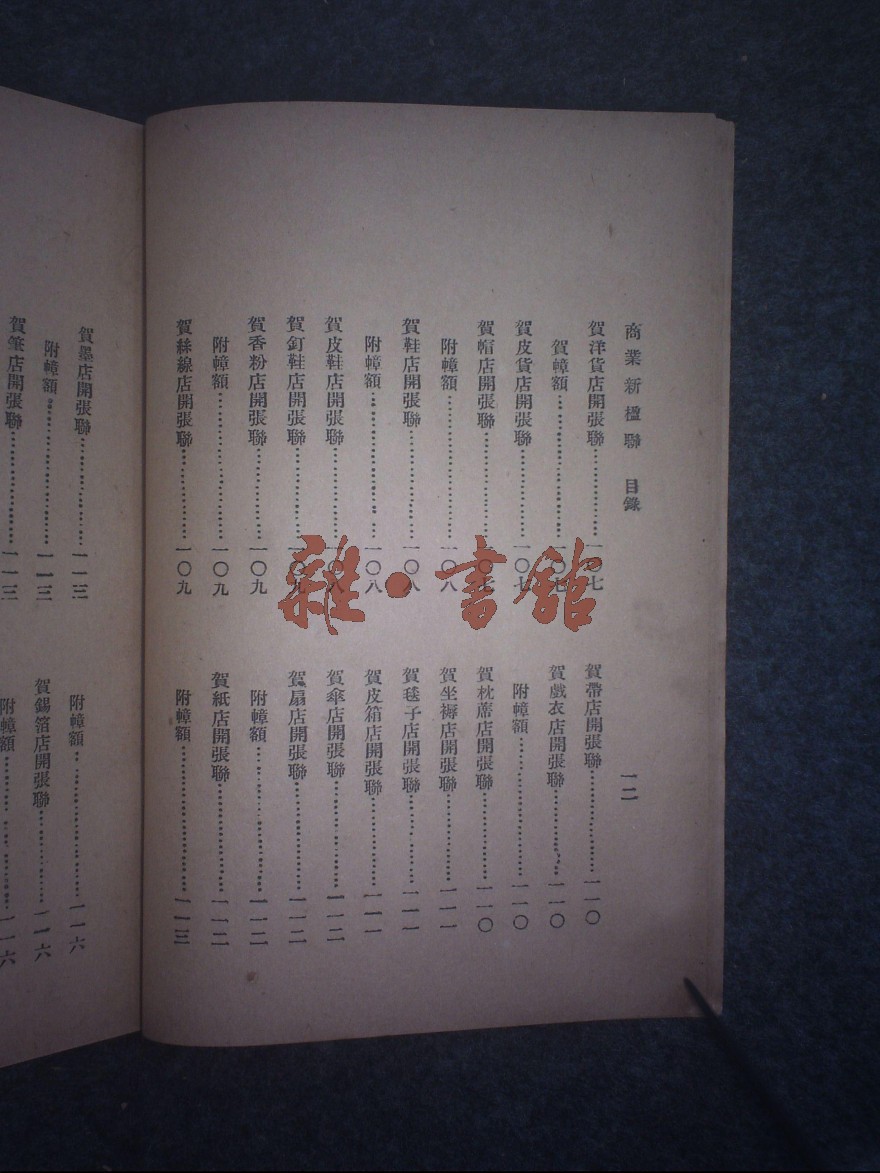 商業新楹聯 目錄 一二
賀洋貨店開張聯……一〇七
賀幛額……一〇七
賀皮貨店開張聯……一〇七
賀帽店開張聯……一〇七
附幛額……一〇八
賀鞋店開張聯……一〇八
附幛額……一〇八
賀皮鞋店開張聯……一〇八
賀釘鞋店開張聯……一〇九
賀香粉店開張聯……一〇九
附幛額……一〇九
賀絲線店開張聯……一〇九
賀帶店開張聯……一一〇
賀戲衣店開張聯……一一〇
附幛額……一一〇
賀枕蓆店開張聯……一一〇
賀坐褥店開張聯……一一一
賀毯子店開張聯……一一一
賀皮箱店開張聯……一一一
賀傘店開張聯……一一二
賀扇店開張聯……一一二
附幛額……一一二
賀紙店開張聯……一一二
附幛額……一一三
賀墨店開張聯……一一三
附幛額……一一三
賀筆店開張聯……一一三
附幛額……一一六
賀錫箔店開張聯……一一六
附幛額……一一六
雜·書館